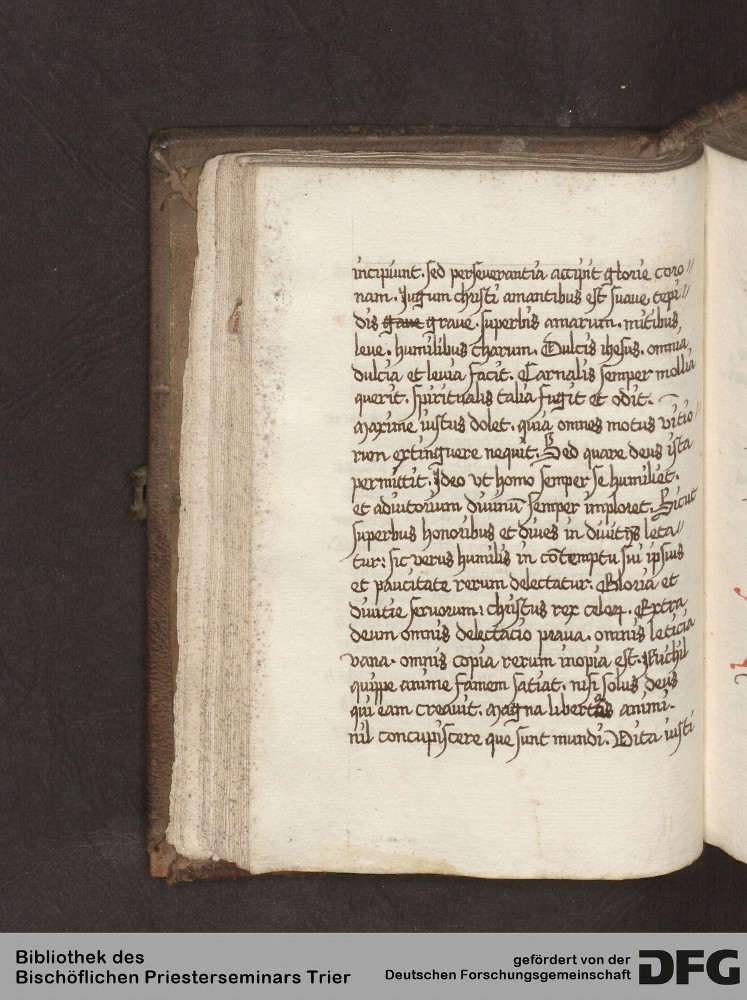 incipiunt. sed perseuerantia accipit glorie coro//
nam. Jugum christi amantibus est suaue. tepi//
dis graue graue. superbis amarum. mitibus
leue. humilibus charum. Dulcis ihesus. omnia
dulcia et leuia facit. Carnalis semper mollia
querit. spiritualis talia fugit et odit.
Maxime iustus dolet. quia omnes motus vitio//
rum extinguere nequit. Sed quare deus ista
permittit. Ideo vt homo semper se humiliet.
et adiutorium diuinū semper imploret. Sicut
superbus honoribus et diues in diuitijs leta//
tur: sic verus humilis in cōtemptu sui ipsius
et paucitate rerum delectatur. Gloria et
diuitie seruorum: christus rex celoꝝ. Extra
deum omnis delectacio praua. omnis leticia
vana. omnis copia rerum inopia est. Nichil
quippe anime famem satiat. nisi solus deus
qui eam creauit. Magna libertas animi.
nil concupiscere que sunt mundi. Vita iusti
Bibliothek des
Bischöflichen Priesterseminars Trier
gefördert von der
Deutschen Forschungsgemeinschaft
DFG